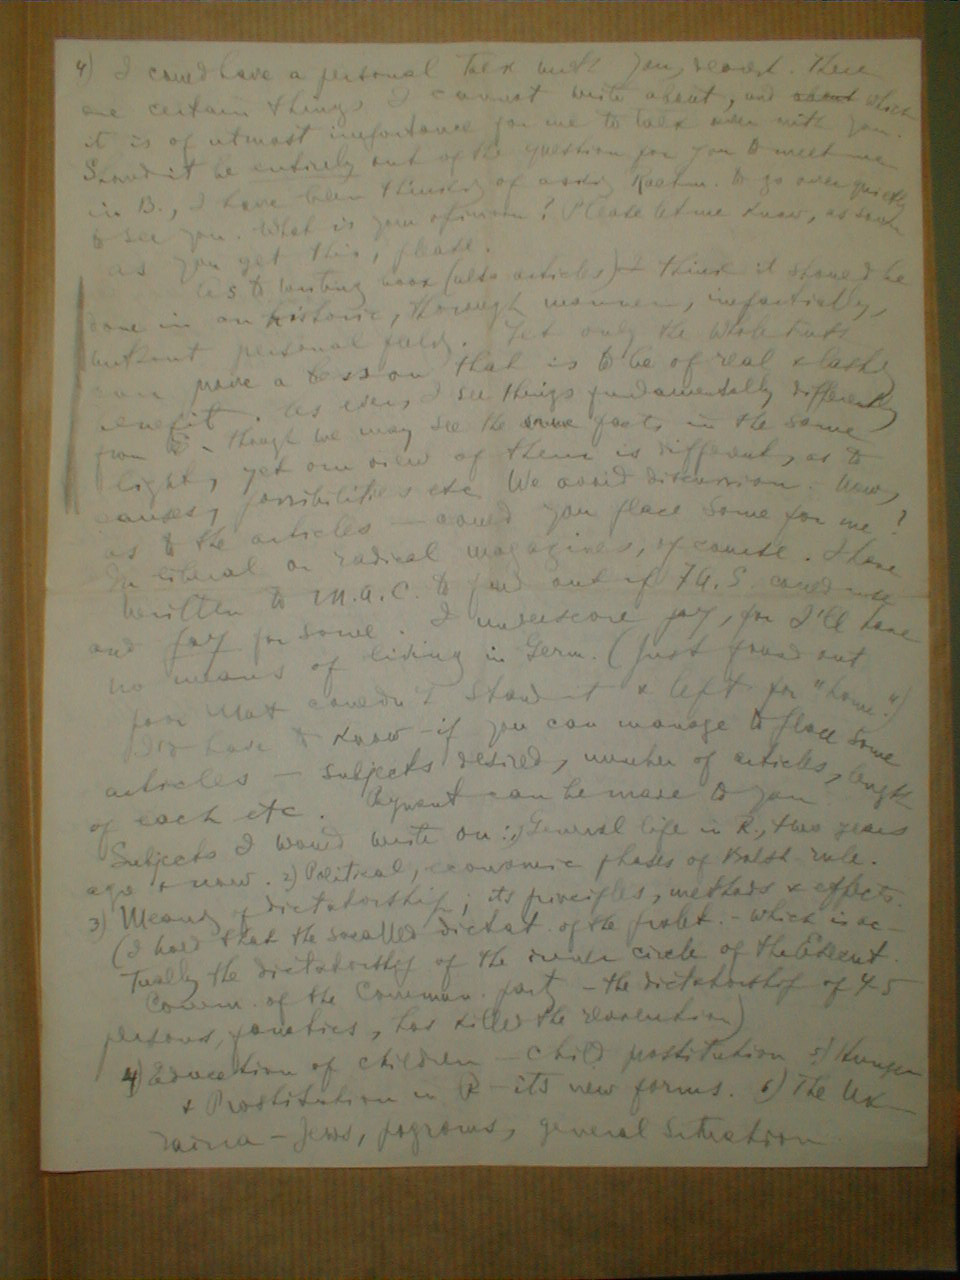 4) I could have a personal talk with you, dearest. There
are certain things I cannot write about, and about which
it is of utmost importance for me to talk over with you.
Should it be entirely out of the question for you to meet me
in B., I have been thinking of asking to go over quickly
to see you. What is your opinion? Please let me know, as soon
as you get this, please.
As to writing book (also articles) I think it should be
done in an historic, thorough manner, impartially,
without personal feeling. Yet only the whole truth
can prove a lesson that is to be of real & lasting
benefit. As ever, I see things fundamentally differently
from E. - though we may see the same facts in the same
light, yet our view of them is different, as to
causes, possibilities etc. We avoid discussion. Now,
as to the articles — could you place some for me?
In liberal or radical magazines, of course. I have
written to M.A.C. to find out if F.A.S. could use
and pay for some. I underscore pay, for I'll have
no means of living in Germ. (Just found out
poor Max couldn't stand it & left for "home".)
have to know - if you can manage to place some
articles — subjects desired, number of articles, length
of each etc. Payment can be made to you
Subjects I would write on: 1) General life in R., two years
ago & now. 2) Political, economic phases of Bolsh. rule.
3) Meaning of dictatorship; its principles, methods & effects.
(I hold that the socalled dictat. of the prolet. - which is ac-
tually the dictatorship of the inner circle of the Execut.
Comm. of the Commun. party - the dictatorship of 4-5
persons, fanatics, has killed the revolution)
4) Education of children — child prostitution 5) Hunger
& Prostitution in R - its new forms. 6) The Uk-
raina — Jews, pogroms, general situation